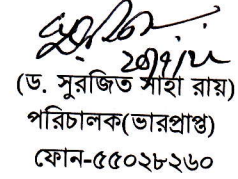 (ড. সুরজিত সাহা রায়)
পরিচালক(ভারপ্রাপ্ত)
ফোন-৫৫০২৮২৬০